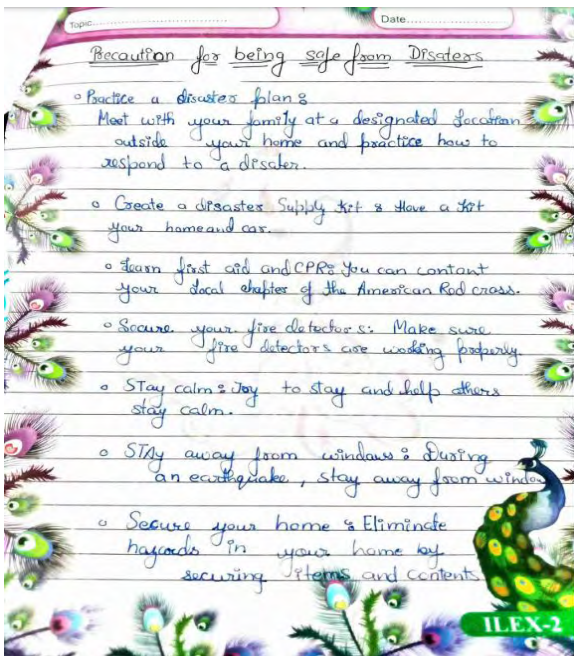 Topic
Date
Precaution for being safe from Disaters
Practice a disaster plan:
Meet with your family at a designated Location
outside your home and practice how to
respond to a disater.
Create a disaster Supply Kit: Have a Kit
your home and car.
Learn first aid and CPR: You can contant
your Local chapter of the American Rod cross.
Secure your fire detectors: Make sure
your fire detectors are working properly.
STay calm: Toy to stay and help others
stay calm.
STAy away from windows: During
an earthquake, stay away from window
Secure your home: Eliminate
hazards in your home by
securing items and contents
ILEX-2